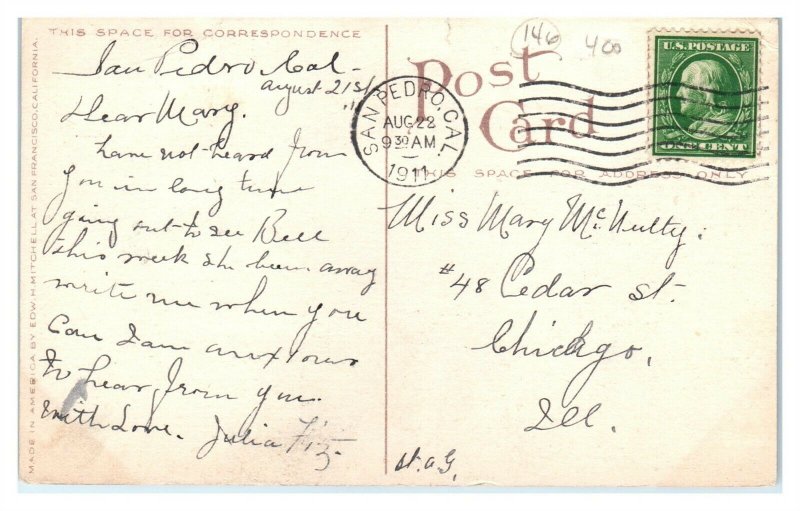 THIS SPACE FOR CORRESPONDENCE
146
400
Post
Card
THIS SPACE FOR ADDRESS ONLY
U.S. POSTAGE
ONE CENT
SAN PEDRO, CAL.
AUG 22
9 30 AM
1911
San Pedro Cal-
August 21st
Dear Mary.
have not heard from
you in long time
going out to see Bell
this week she been away
write me when you
can I am anxious
to hear from you.
with Love. Julia Fiz
Miss Mary McNulty.
#48 Cedar St.
Chicago,
Ill.
St. a G.
MADE IN AMERICA BY EDW. H. MITCHELL AT SAN FRANCISCO, CALIFORNIA.